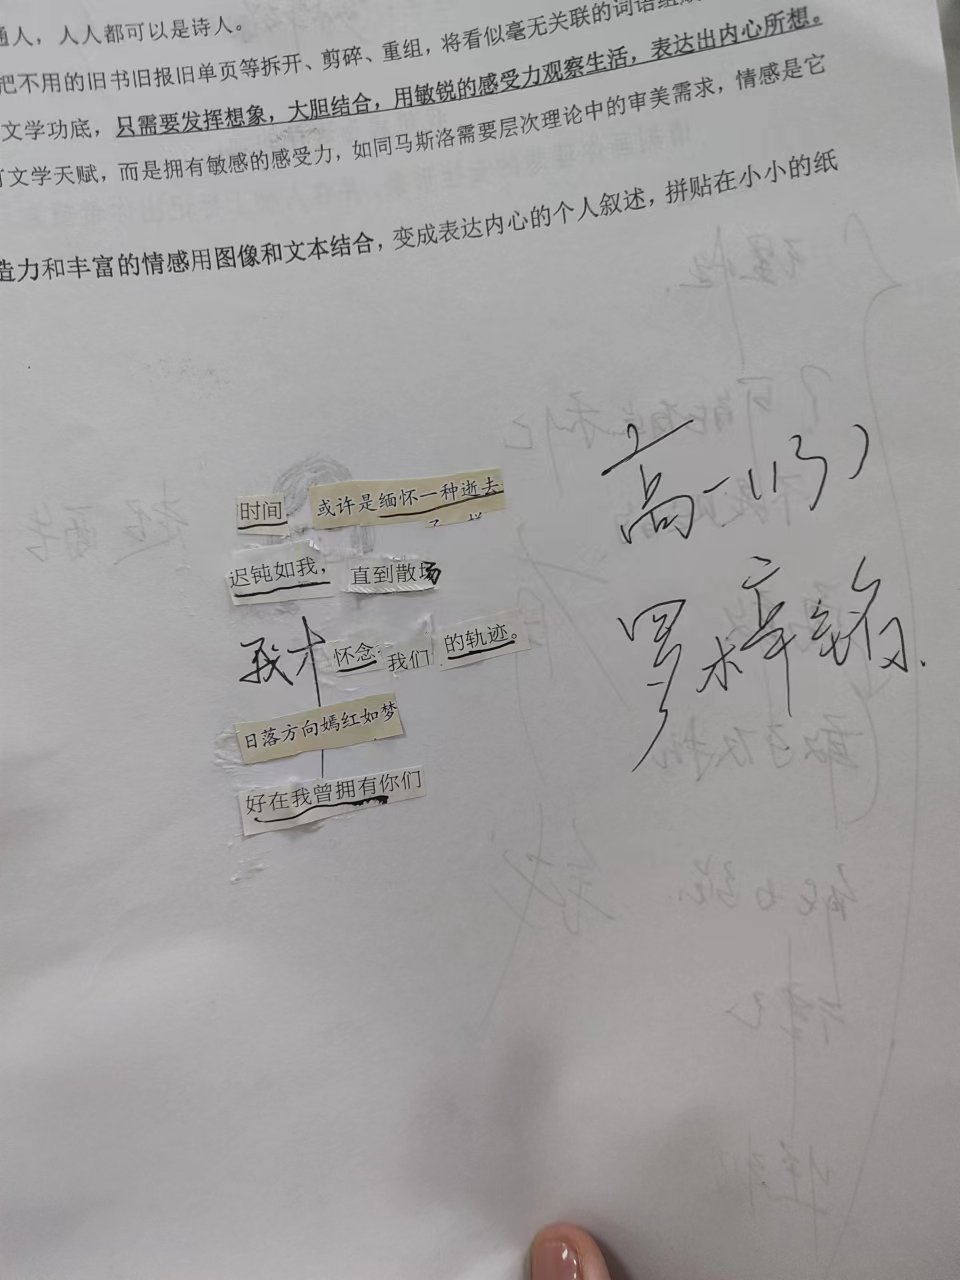 通人，人人都可以是诗人。
把不用的旧书旧报旧单页等拆开、剪碎、重组，将看似毫无关联的词语组
文学功底，只需要发挥想象，大胆结合，用敏锐的感受力观察生活，表达出内心所想。
文学天赋，而是拥有敏感的感受力，如同马斯洛需要层次理论中的审美需求，情感是它
造力和丰富的情感用图像和文本结合，变成表达内心的个人叙述，拼贴在小小的纸
时间 或许是缅怀一种逝去
迟钝如我， 直到散场
我才 怀念 我们 的轨迹。
日落方向嫣红如梦
好在我曾拥有你们
高一(13)
罗梓